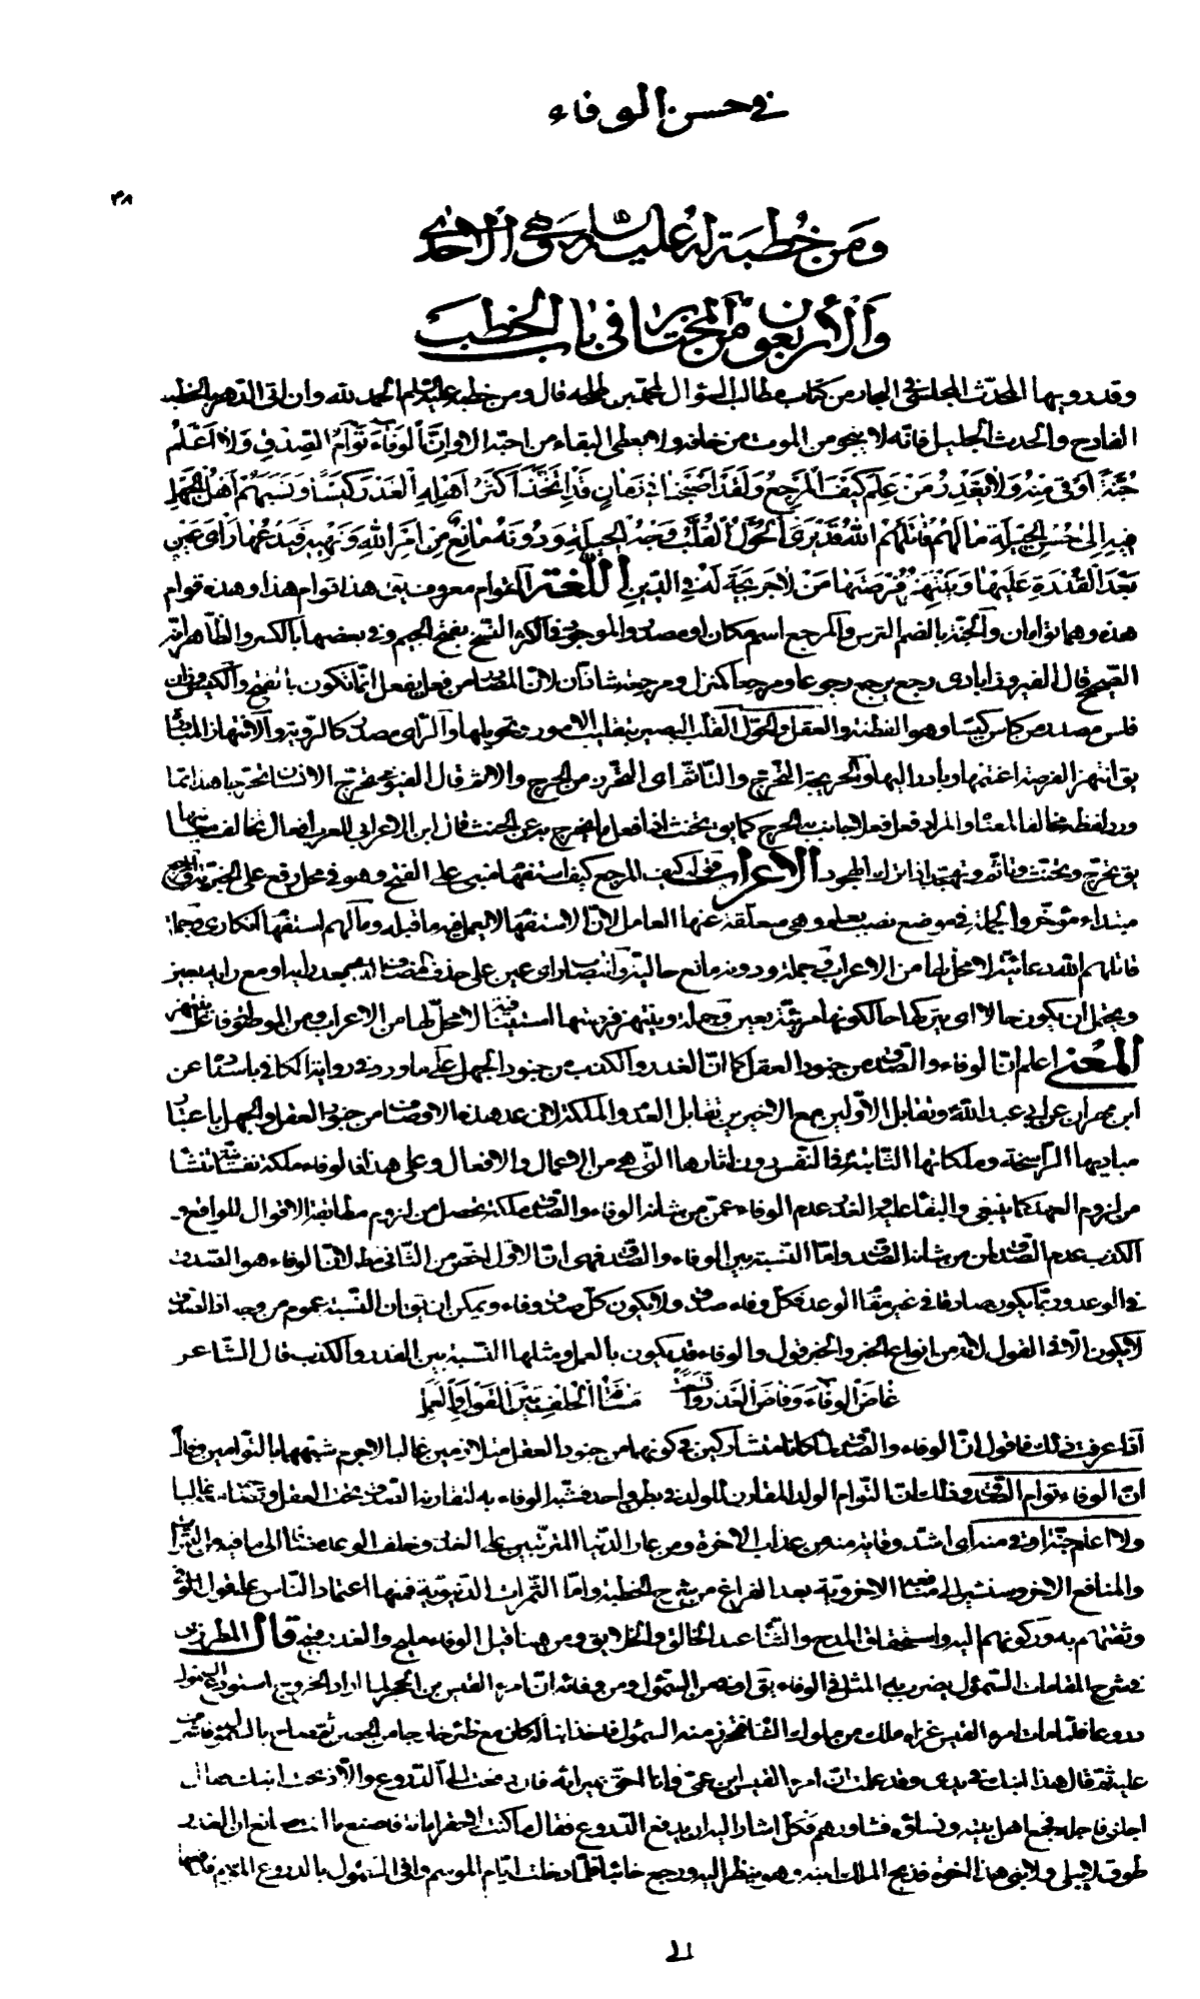 في حسن الوفاء
٣٨
ومن خطبة له عليه السلام وهي الاحدى
والأربعون من المختار في باب الخطب
وقد رويها المحدث المجلسي في البحار من كتاب مطالب السؤال لمحمد بن طلحة قال ومن خطبة عليه السلام الحمد لله وان اتى الدهر بالخطب
الفادح والحدث الجليل فانه لا ينجو من الموت من خافه ولا يعطى البقاء من احبه الا وان الوفاء توأم الصدق ولا أعلم
جنة أوقى منه ولا يغدر من علم كيف المرجع ولقد أصبحنا في زمان قد اتخذ أكثر أهله الغدر كيسا ونسبهم أهل الجهل
فيه إلى حسن الحيلة ما لهم قاتلهم الله قد يرى الحول القلب وجه الحيلة ودونه مانع من أمر الله ونهيه فيدعها رأى عين
بعد القدرة عليها وينتهز فرصتها من لا حريجة له في الدين اللغة التوام معروف يقال هذا توام هذا وهذه توام
هذه وهما توامان والجنة بالضم الترس والمرجع اسم مكان او مصدر والموجود في اكثر النسخ بفتح الجيم وفي بعضها بالكسر والظاهر انه
الصحيح قال الفيروزابادى رجع يرجع رجوعا ومرجعا كمنزل ومرجعة شاذان لان المصادر من فعل يفعل انما تكون بالفتح والكيس وزان
فلس مصدر من كاس كيسا وهو الفطنة والعقل والحول القلب البصير بتقليب الامور وتحويلها والراى مصدر كالرؤية والانتهاز المبادرة
يق انتهز الفرصة اغتنمها وبادر اليها والحريجة التحرج والتاثم اى التحرز من الحرج والاثم قال الفيومي تحرج الانسان تحرجا هذا مما
ورد لفظه مخالفا لمعناه والمراد فعل فعلا جانب به الحرج كما يق تحنث اذا فعل ما يخرج به عن الحنث قال ابن الاعرابي للعرب افعال تخالف معانيها
يق تحرج وتحنث وتاثم وتهجد اذا ترك الهجود الاعراب قوله كيف المرجع كيف استفهام مبني على الفتح وهو في محل رفع على الخبرية والمرجع
مبتداء مؤخر والجملة في موضع نصب بعلم وهي معلقة عنها العامل لان الاستفهام لا يعمل فيه ما قبله وما لهم استفهام انكارى وجملة
قاتلهم الله دعائية لا محل لها من الاعراب وجملة ودونه مانع حالية وانتصاب راى عين على حذف المضاف اى بعد رايه او مع رايه بعين
ويحتمل ان يكون حالا اى يتركها حالكونها مرئية بعين وجملة وينتهز فرصتها استينافية لا محل لها من الاعراب ومن الموصولة فاعل ينتهز
المعنى اعلم ان الوفاء والصدق من جنود العقل كما ان الغدر والكذب من جنود الجهل على ما ورد في رواية الكافي باسناده عن
ابن مهران عن ابي عبد الله وتقابل الاولين مع الاخيرين تقابل العدم والملكة لان عد هذه الاوصاف من جنود العقل والجهل باعتبار
مباديها الراسخة وملكاتها الثابتة في النفس دون اثارها التى هى من الاعمال والافعال وعلى هذا فالوفاء ملكة نفسانية تنشا
من لزوم العهد كما ينبغي والبقاء عليه والغدر عدم الوفاء عمن من شانه الوفاء والصدق ملكة تحصل من لزوم مطابقة الاقوال للواقع و
الكذب عدم الصدق لمن من شانه الصدق واما النسبة بين الوفاء والصدق فهى ان الاول اخص من الثانى مطلقا لان الوفاء هو الصدق
في الوعد وربما يكون صادقا في غير مقام الوعد فكل وفاء صدق ولا يكون كل صدق وفاء ويمكن ان يق ان النسبة عموم من وجه اذ الصدق
لا يكون الا في القول لانه من انواع الخبر والخبر قول والوفاء قد يكون بالعمل ومثلها النسبة بين الغدر والكذب قال الشاعر
غاض الوفاء وفاض الغدر وانفرجت مسافة الخلف بين القول والعمل
اذا عرفت ذلك فاقول ان الوفاء والصدق لما كانا متشاركين في كونهما من جنود العقل متلازمين غالبا لاجرم شبههما بالتوامين وقال
ان الوفاء توام الصدق وذلك لان التوام الولد المقارن للولد في بطن واحد فشبه الوفاء به لتقارنه الصدق تحت العقل غالبا
ولا اعلم جنة اوقى منه اى اشد وقاية منه من عذاب الاخرة ومن عار الدنيا المترتبين على الغدر وخلف الوعد مضافا الى ما فيه من الثمرات
والمنافع الاخر وسنشير الى منافعه الاخروية بعد الفراغ من شرح الخطبة واما الثمرات الدنيوية فمنها اعتماد الناس على قول الموفى
وثقتهم به وركونهم اليه واستحقاق المدح والثناء عند الخالق والخلايق ومن هنا قيل الوفاء مليح والغدر قبيح قال المطرزى
في شرح المقامات السموئل يضرب به المثل في الوفاء يق اوفى من السموئل ومن وفائه ان امرء القيس بن حجر لما اراد الخروج استودع السموئل
دروعا فلما مات امرء القيس غزاه ملك من ملوك الشام فتحرز منه السموئل فاخذ ابنا له كان مع ظئر خارجا من الحصن ثم صاح بالسموئل فاشرف
عليه ثم قال هذا ابنك في يدى وقد علمت ان امرء القيس ابن عمى وانا احق بميراثه فان دفعت الى الدروع والا ذبحت ابنك فقال
اجلنى فاجله فجمع اهل بيته ونسائه فشاورهم فكل اشار اليه ان يدفع الدروع فقال ما كنت لاخفر امانة فاصنع ما انت صانع ان الغدر
طوق لا يبلى ولابنى هذا اخوة فذبح الملك ابنه وهو ينظر اليه ورجع خائبا فلما دخلت ايام الموسم وافى السموئل بالدروع الموسم فدفعها